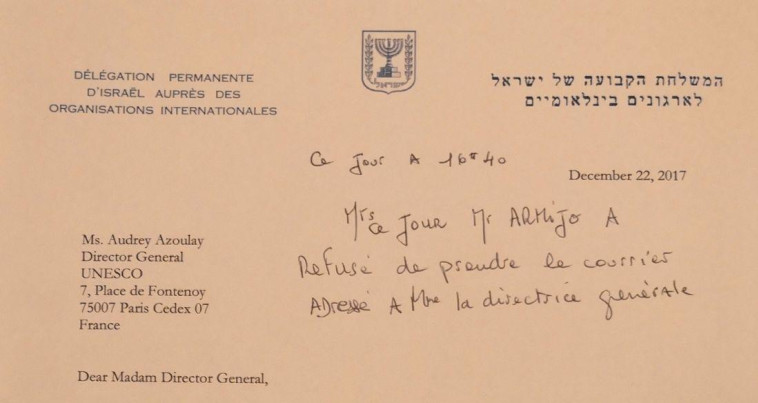 DÉLÉGATION PERMANENTE
D'ISRAËL AUPRÈS DES
ORGANISATIONS INTERNATIONALES
ישראל
המשלחת הקבועה של ישראל
לארגונים בינלאומיים
Ce jour A 16H40
December 22, 2017
Mrs
Ce Jour Mr ARMIJO A
Refusé de prendre le courrier
ADressé A Mme la directrice générale
Ms. Audrey Azoulay
Director General
UNESCO
7, Place de Fontenoy
75007 Paris Cedex 07
France
Dear Madam Director General,